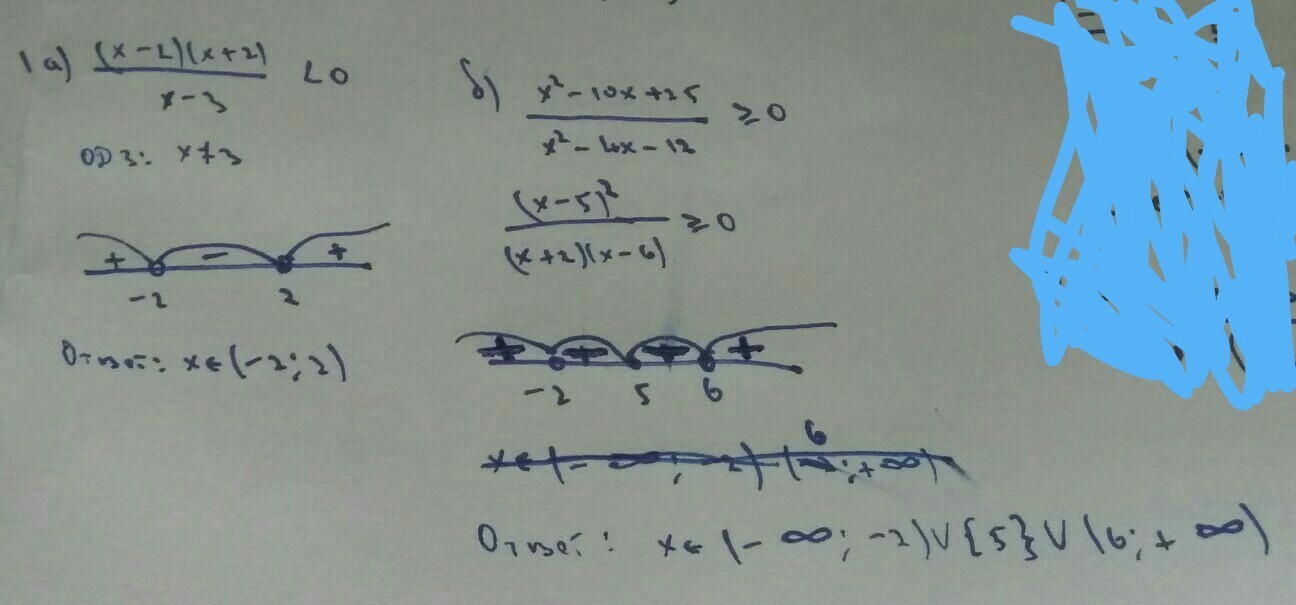 1а) (x-2)(x+2)
x-3
<0
ОДЗ: x≠3
+ - +
-2 2
Ответ: x∈(-2;2)
б) x²-10x+25
x²-4x-12
≥0
(x-5)²
(x+2)(x-6)
≥0
+
-2 5 6
6
x∈(-∞; -2) (; +∞)
Ответ: x∈(-∞; -2)∨{5}∨(6; +∞)